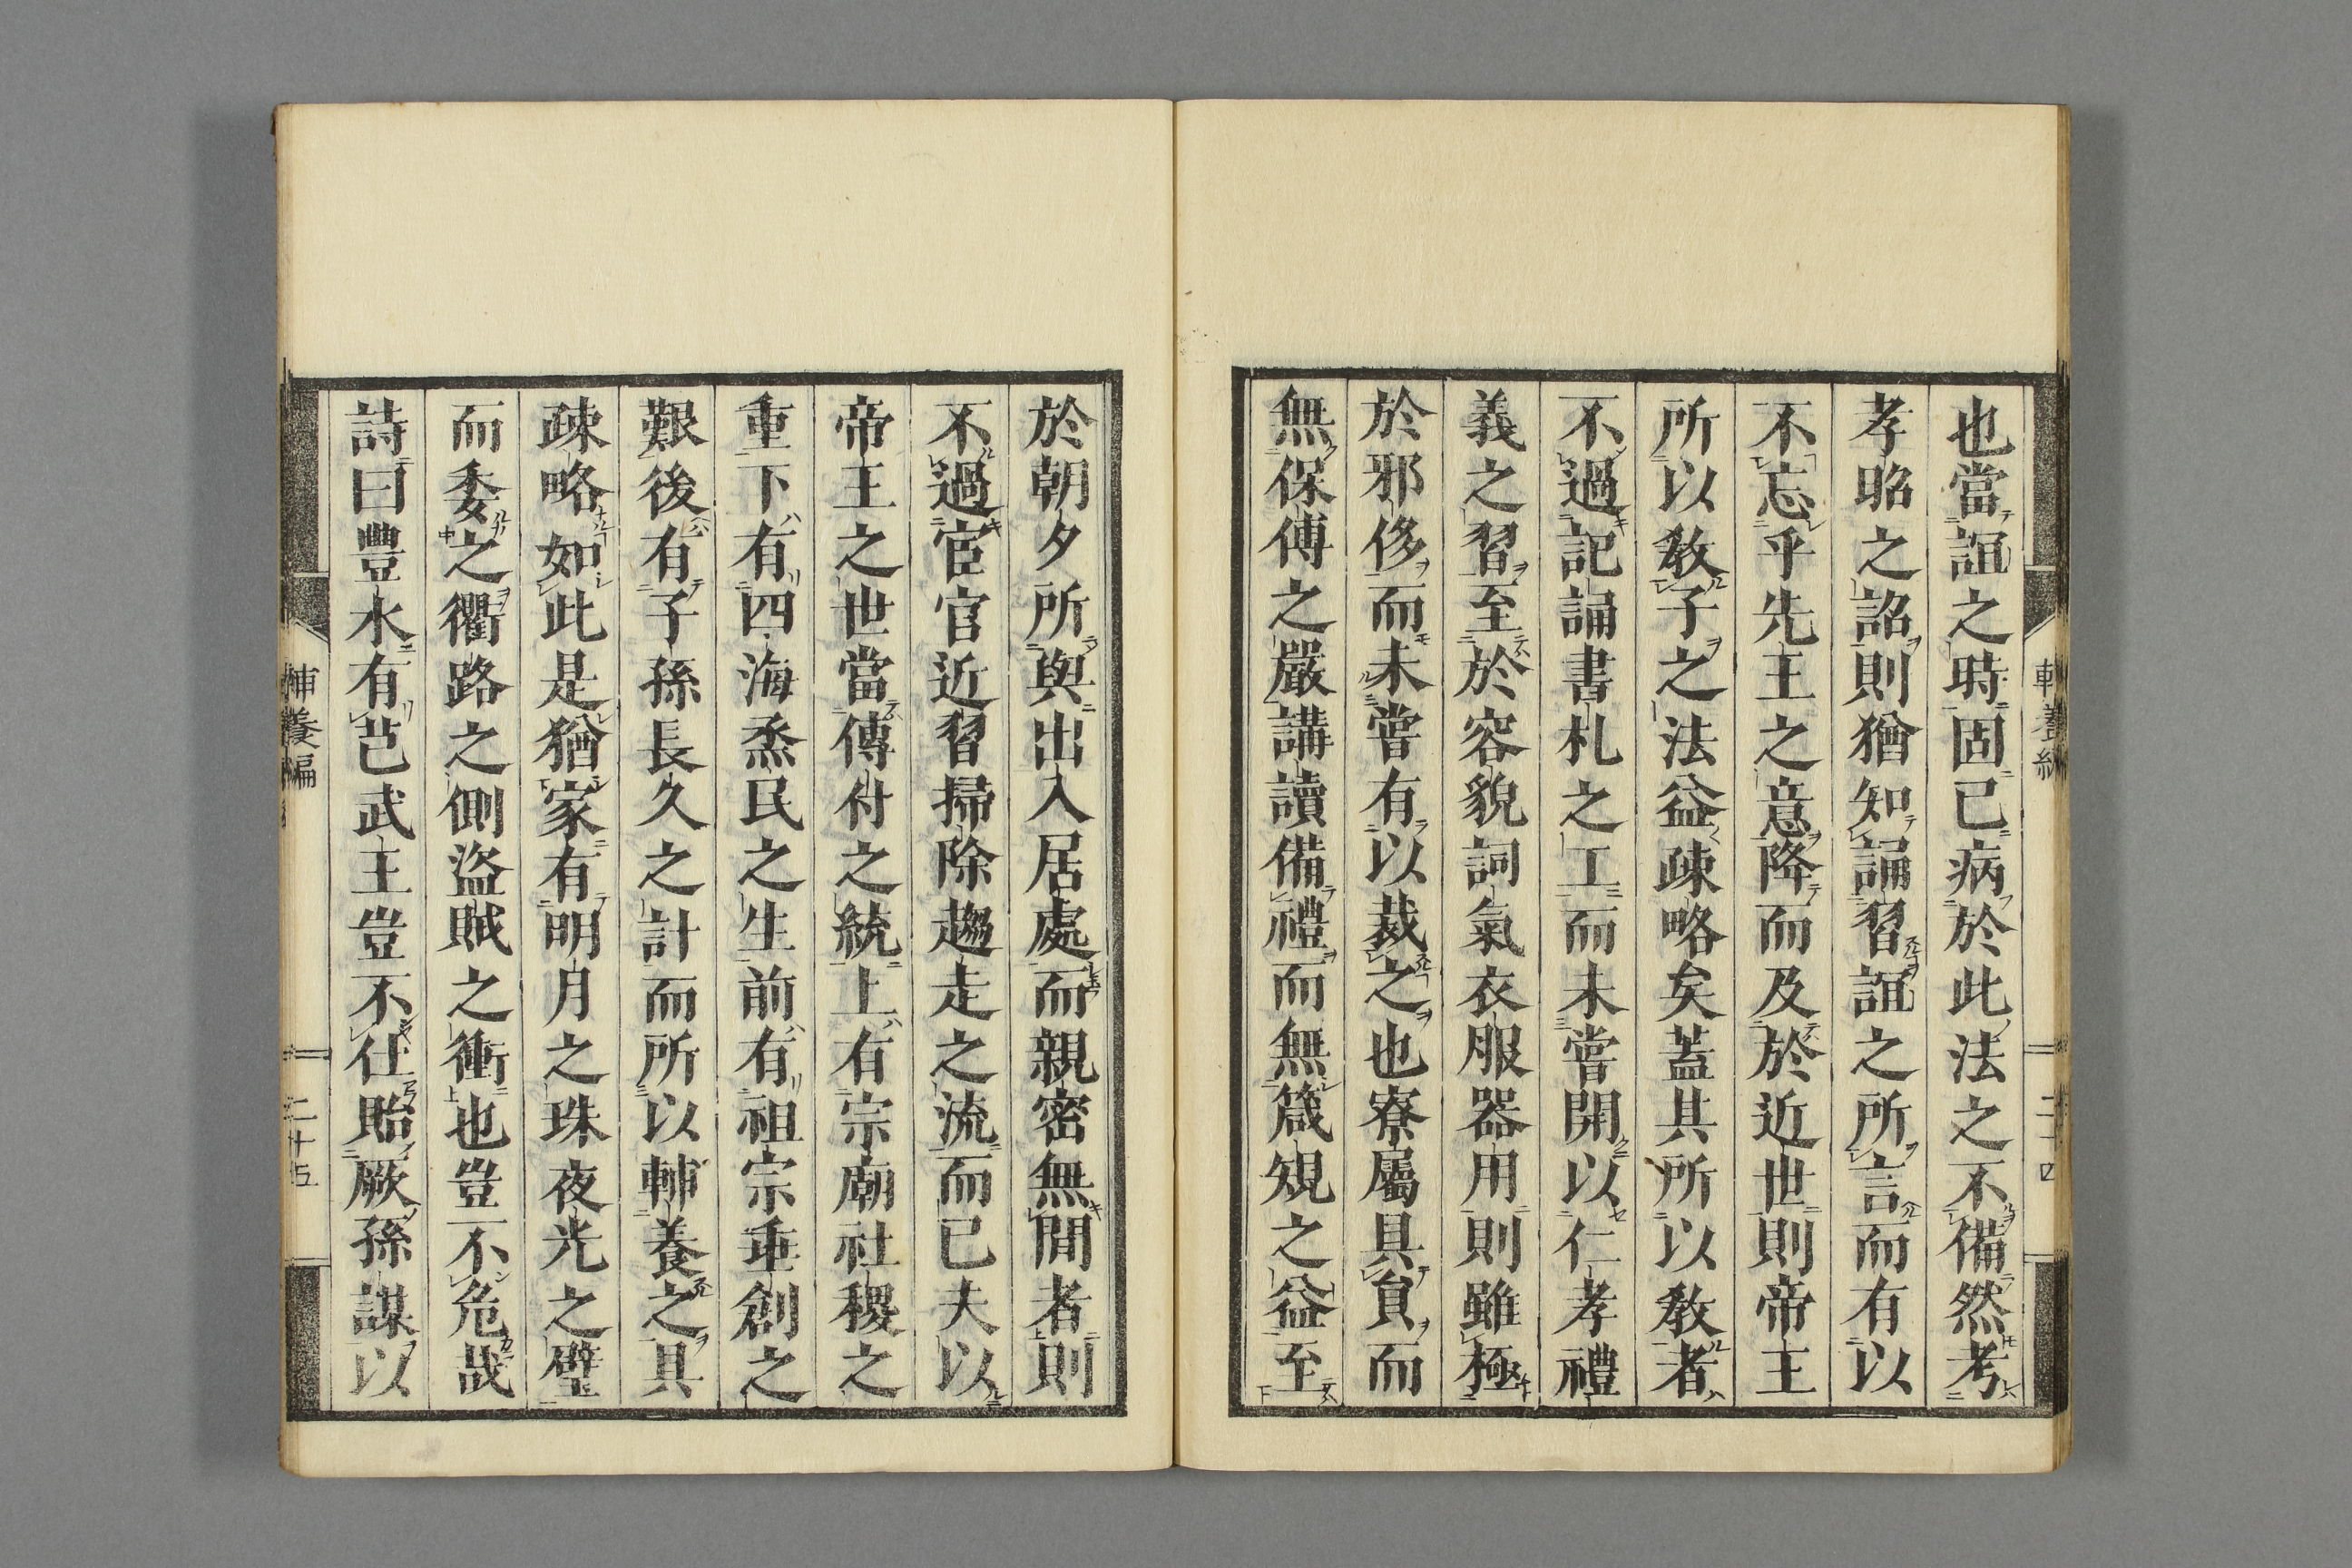 也當誼之時固已病於此法之不備然考
孝昭之詔則猶知誦習誼之所言而有以
不忘乎先王之意降而及於近世則帝王
所以敎子之法益疎略矣蓋其所以敎者
不過記誦書札之工而未嘗開以仁孝禮
義之習至於容貌詞氣衣服器用則雖極
於邪侈而未嘗有以裁之也寮屬具員而
無保傅之嚴講讀備禮而無箴規之益至
於朝夕所與出入居處而親密無間者則
不過宦官近習掃除趨走之流而已夫以
帝王之世當傳付之統上有宗廟社稷之
重下有四海烝民之生前有祖宗垂創之
艱後有子孫長久之計而所以輔養之具
疎略如此是猶家有明月之珠夜光之璧
而委之衢路之側盜賊之衝也豈不危哉
詩曰豐水有芑武王豈不仕貽厥孫謀以
輔養編
二十五